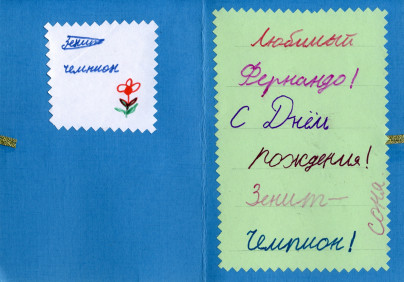 Зенит
чемпион
Любимый
Фернандо!
С Днём
рождения!
Зенит-
Чемпион!
Соня